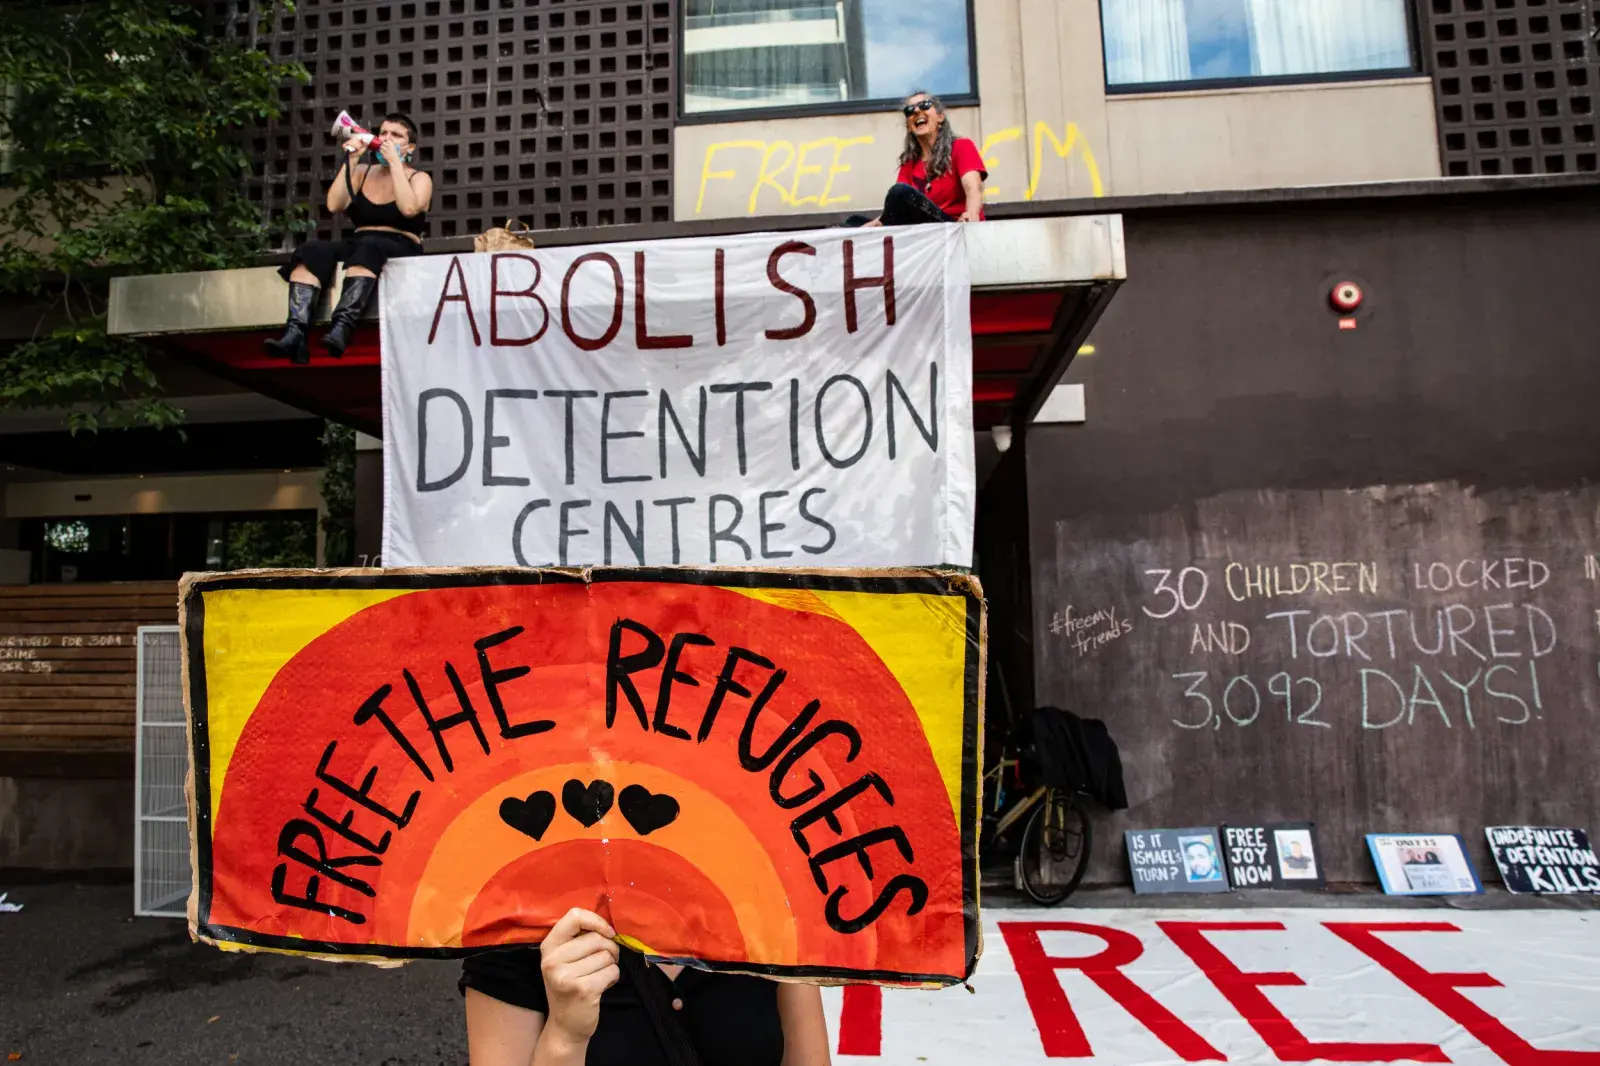 FREE EM
ABOLISH
DETENTION
CENTRES
FREE THE REFUGEES
#freemy
friends
30 CHILDREN LOCKED
AND TORTURED
3,092 DAYS!
CRIME
IS IT
ISMAEL'S
TURN?
FREE
JOY
NOW
INDEFINITE
DETENTION
KILLS
FREE